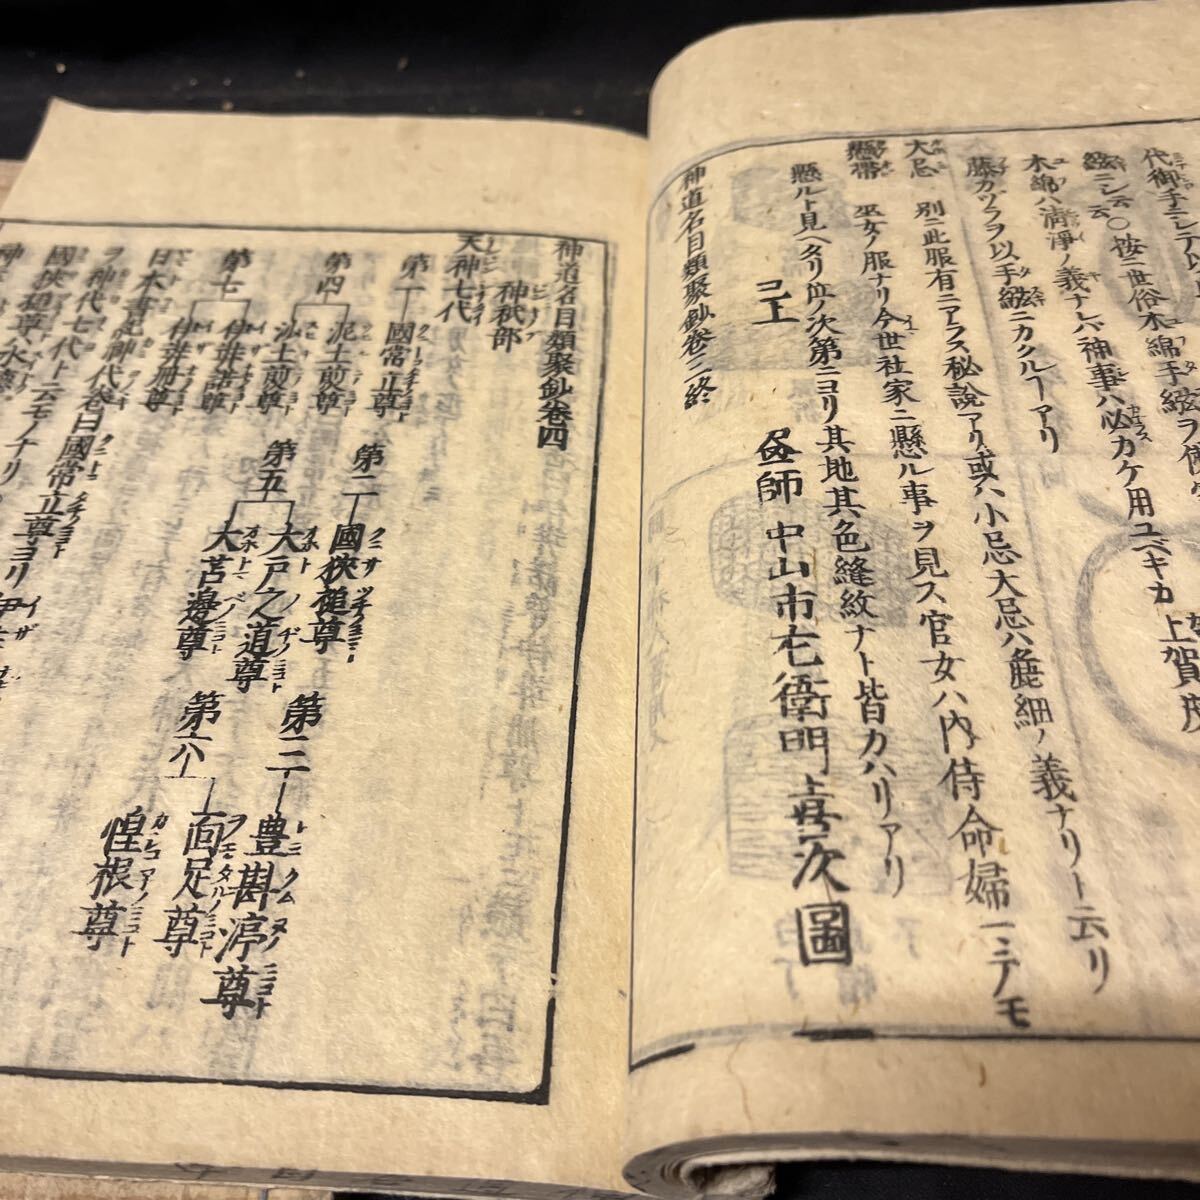 代御手ニシテ以
木綿ハ清淨ノ義ナレバ神事ハ必カケ用ユベキカ上賀茂
藤カヅラヲ以手繦ニカクルーアリ
大忌 別ニ此服有ニアラス秘説アリ或ハ小忌大忌ハ麁細ノ義ナリト云リ
懸帯 巫女ノ服ナリ今世社家ニ懸ル事ヲ見ス官女ハ内侍命婦
懸ルト見ヘタリ此ノ次第ニヨリ其地其色縫紋ナト皆カハリアリ
画師 中山市右衛門喜次圖
神道名目類聚鈔卷三終
神道名目類聚鈔卷四
神祇部
天神七代
第一 國常立尊
第二 國狹槌尊
第三 豊斟渟尊
第四 泥土煑尊
沙土煑尊
第五 大戸之道尊
大苫邊尊
第六 面足尊
惶根尊
第七 伊弉諾尊
伊弉冊尊
日本書記神代卷曰國常立尊ヨリ
ヲ神代七代ト云モノナリ
國狹槌尊ハ水德